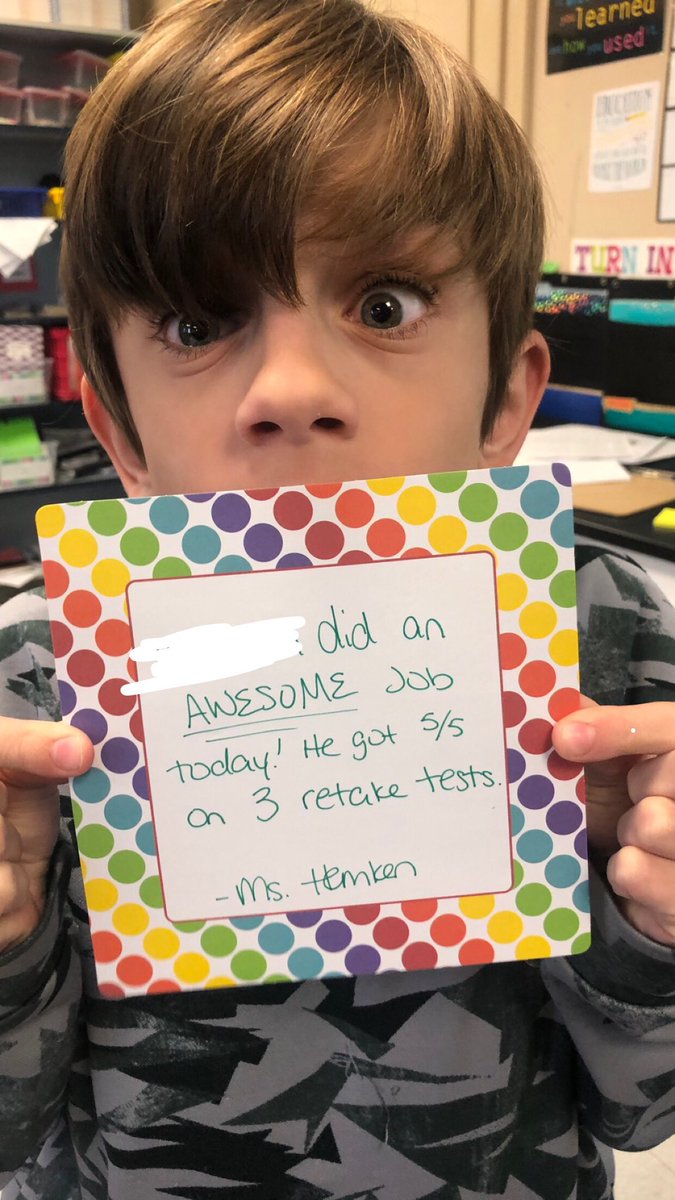 you learned
how you used
TURN IN
did an
AWESOME Job
today! He got 5/5
on 3 retake tests.
-Ms. Hemken